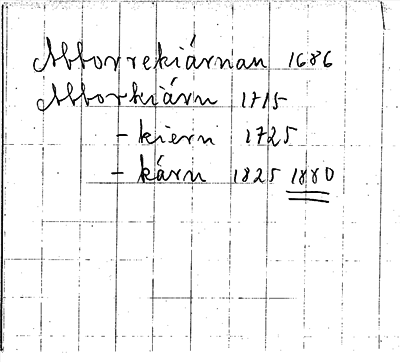 Abborrekiärnan 1686
Abborkiärn 1715
- kiern 1725
- kärn 1825 1880